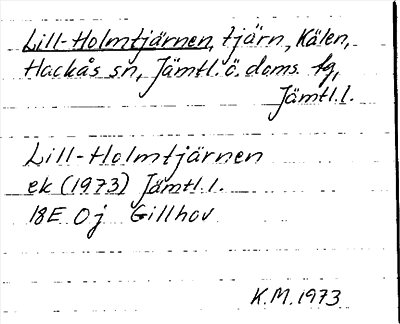 Lill-Holmtjärnen, tjärn, Kälen,
Hackås sn, Jämtl. ö. doms. tg,
Jämtl.l.
Lill-Holmtjärnen
ek (1973) Jämtl.l.
18E Oj Gillhov
K.M. 1973